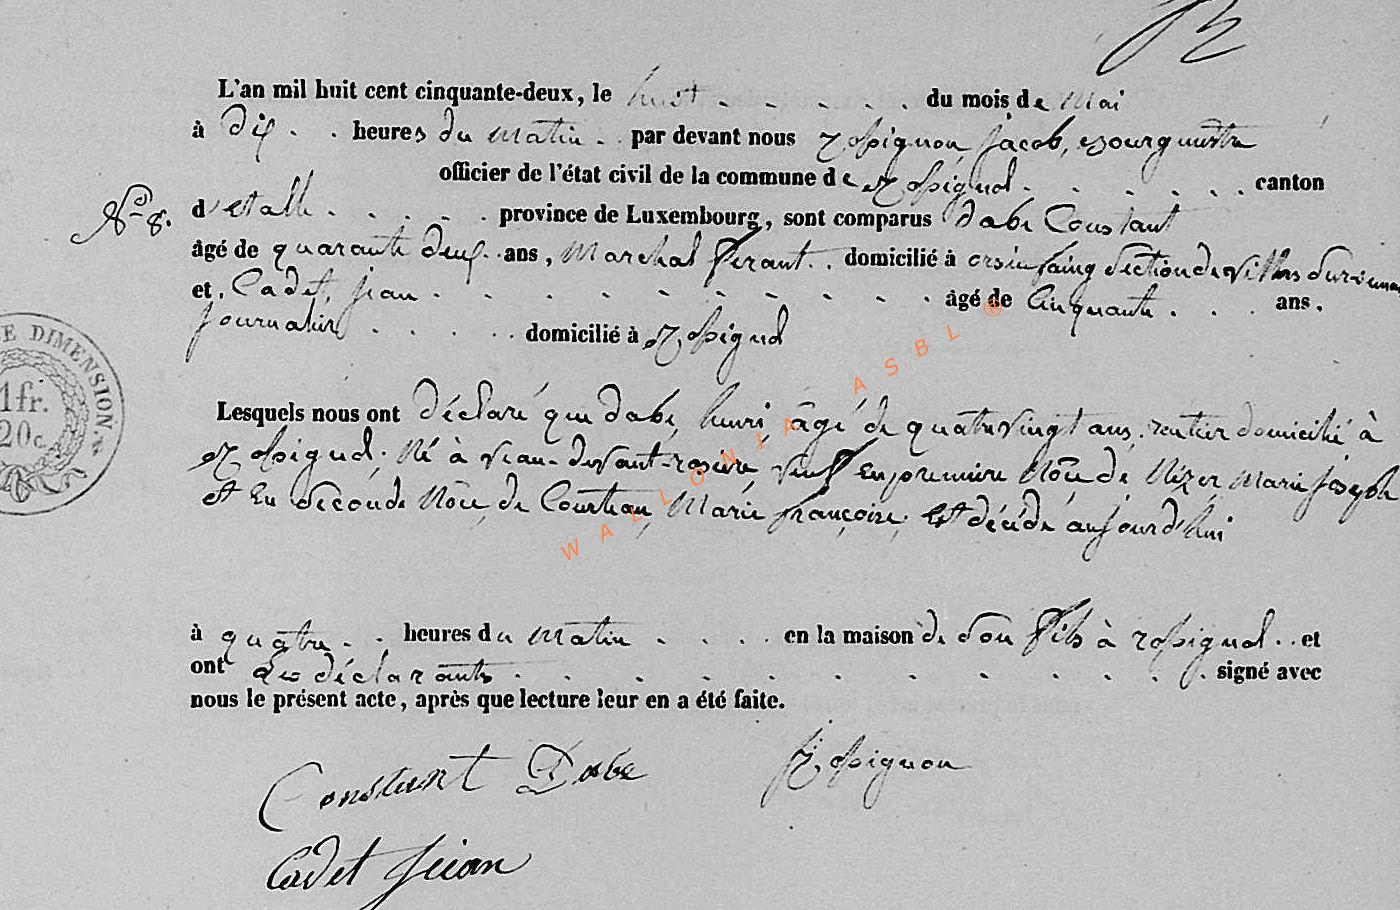 L'an mil huit cent cinquante-deux, le huit . . . . . . du mois de Mai
à dix . . heures du matin . . par devant nous Rossignon, Jacob, Bourgmestre
officier de l'état civil de la commune de Rossignol . . . . . . canton
N° 8.
d'etalle . . . . . province de Luxembourg, sont comparus dabe Constant
âgé de quarante deux . . ans, Marchal ferant . . domicilié à orsinfaing section de Villers sur
et, Cadet, jean . . . . . . . . . . âgé de Cinquante . . . ans.
journalier . . . . . domicilié à Rossignol
E DIMENSION
1fr.
20c
Lesquels nous ont déclaré que dabe, henri, âgé de quatre vingt ans, rentier domicilié à
Rossignol, Né à vian-devant-rosière, veuf En première Nôce de Nizer Marie joseph
et En seconde Nôce, de Courteau, Marie françoise, Est décidé aujourd'hui
à quatre . . heures du matin . . . . en la maison de son fils à rossignol . . et
ont Les déclarants . . . . . . . . . . signé avec
nous le présent acte, après que lecture leur en a été faite.
Constant Dabe Rossignon
Cadet Jean
WALLONIA ASBL ®